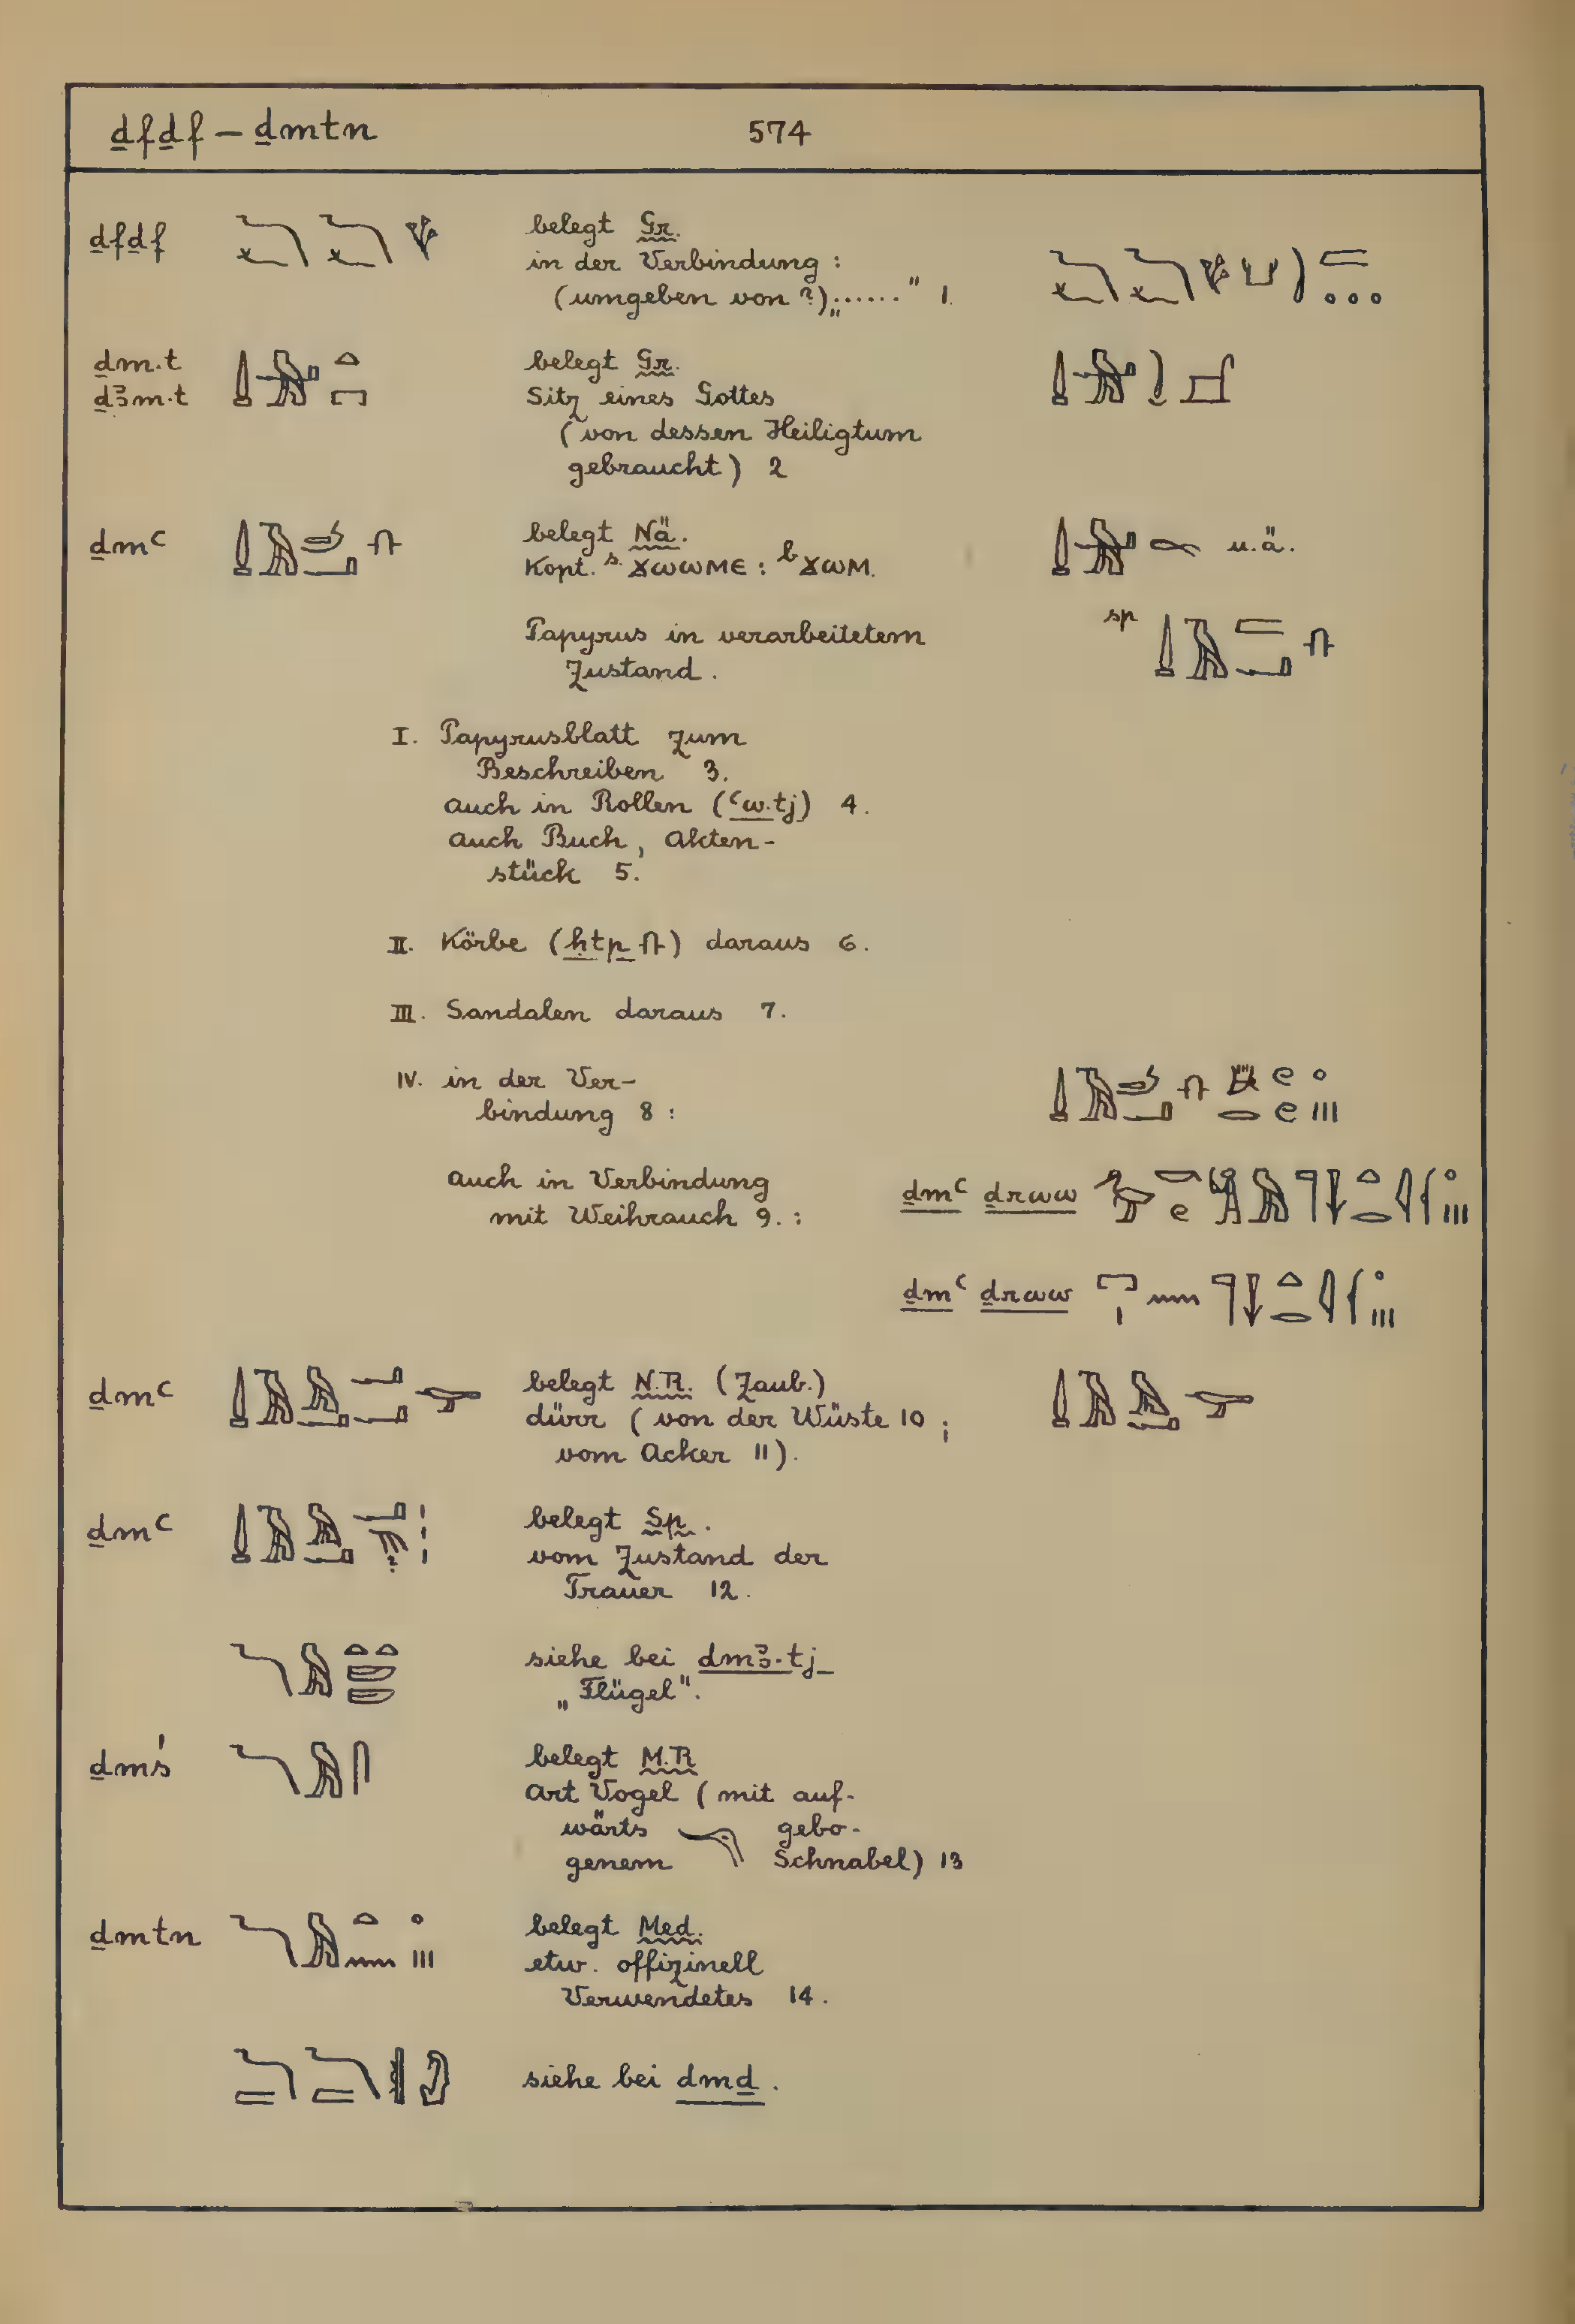 ḏfḏf – ḏmtn 574
ḏfḏf belegt Gr.
in der Verbindung:
(umgeben von?) „......“ 1.
ḏm·t belegt Gr.
ḏꜣm·t Sitz eines Gottes
(von dessen Heiligtum
gebraucht) 2
ḏmꜥ belegt Nä. u.ä.
Kopt. s. ϫⲱⲱⲙⲉ : b ϫⲱⲙ.
sp
Papyrus in verarbeitetem
Zustand.
I. Papyrusblatt zum
Beschreiben 3.
auch in Rollen (ꜥw.tj) 4.
auch Buch, Akten-
stück 5.
II. Körbe (ḥtp) daraus 6.
III. Sandalen daraus 7.
IV. in der Ver-
bindung 8:
auch in Verbindung ḏmꜥ ḏrww
mit Weihrauch 9.:
ḏmꜥ ḏrww
ḏmꜥ belegt N.R. (Zaub.)
dürr (von der Wüste 10;
vom Acker 11).
ḏmꜥ belegt Sp.
vom Zustand der
Trauer 12.
siehe bei dmꜣ·tj
„Flügel“.
ḏmś belegt M.R
Art Vogel (mit auf-
wärts gebo-
genem Schnabel) 13
ḏmtn belegt Med.
etw. offizinell
Verwendetes 14.
siehe bei dmḏ.